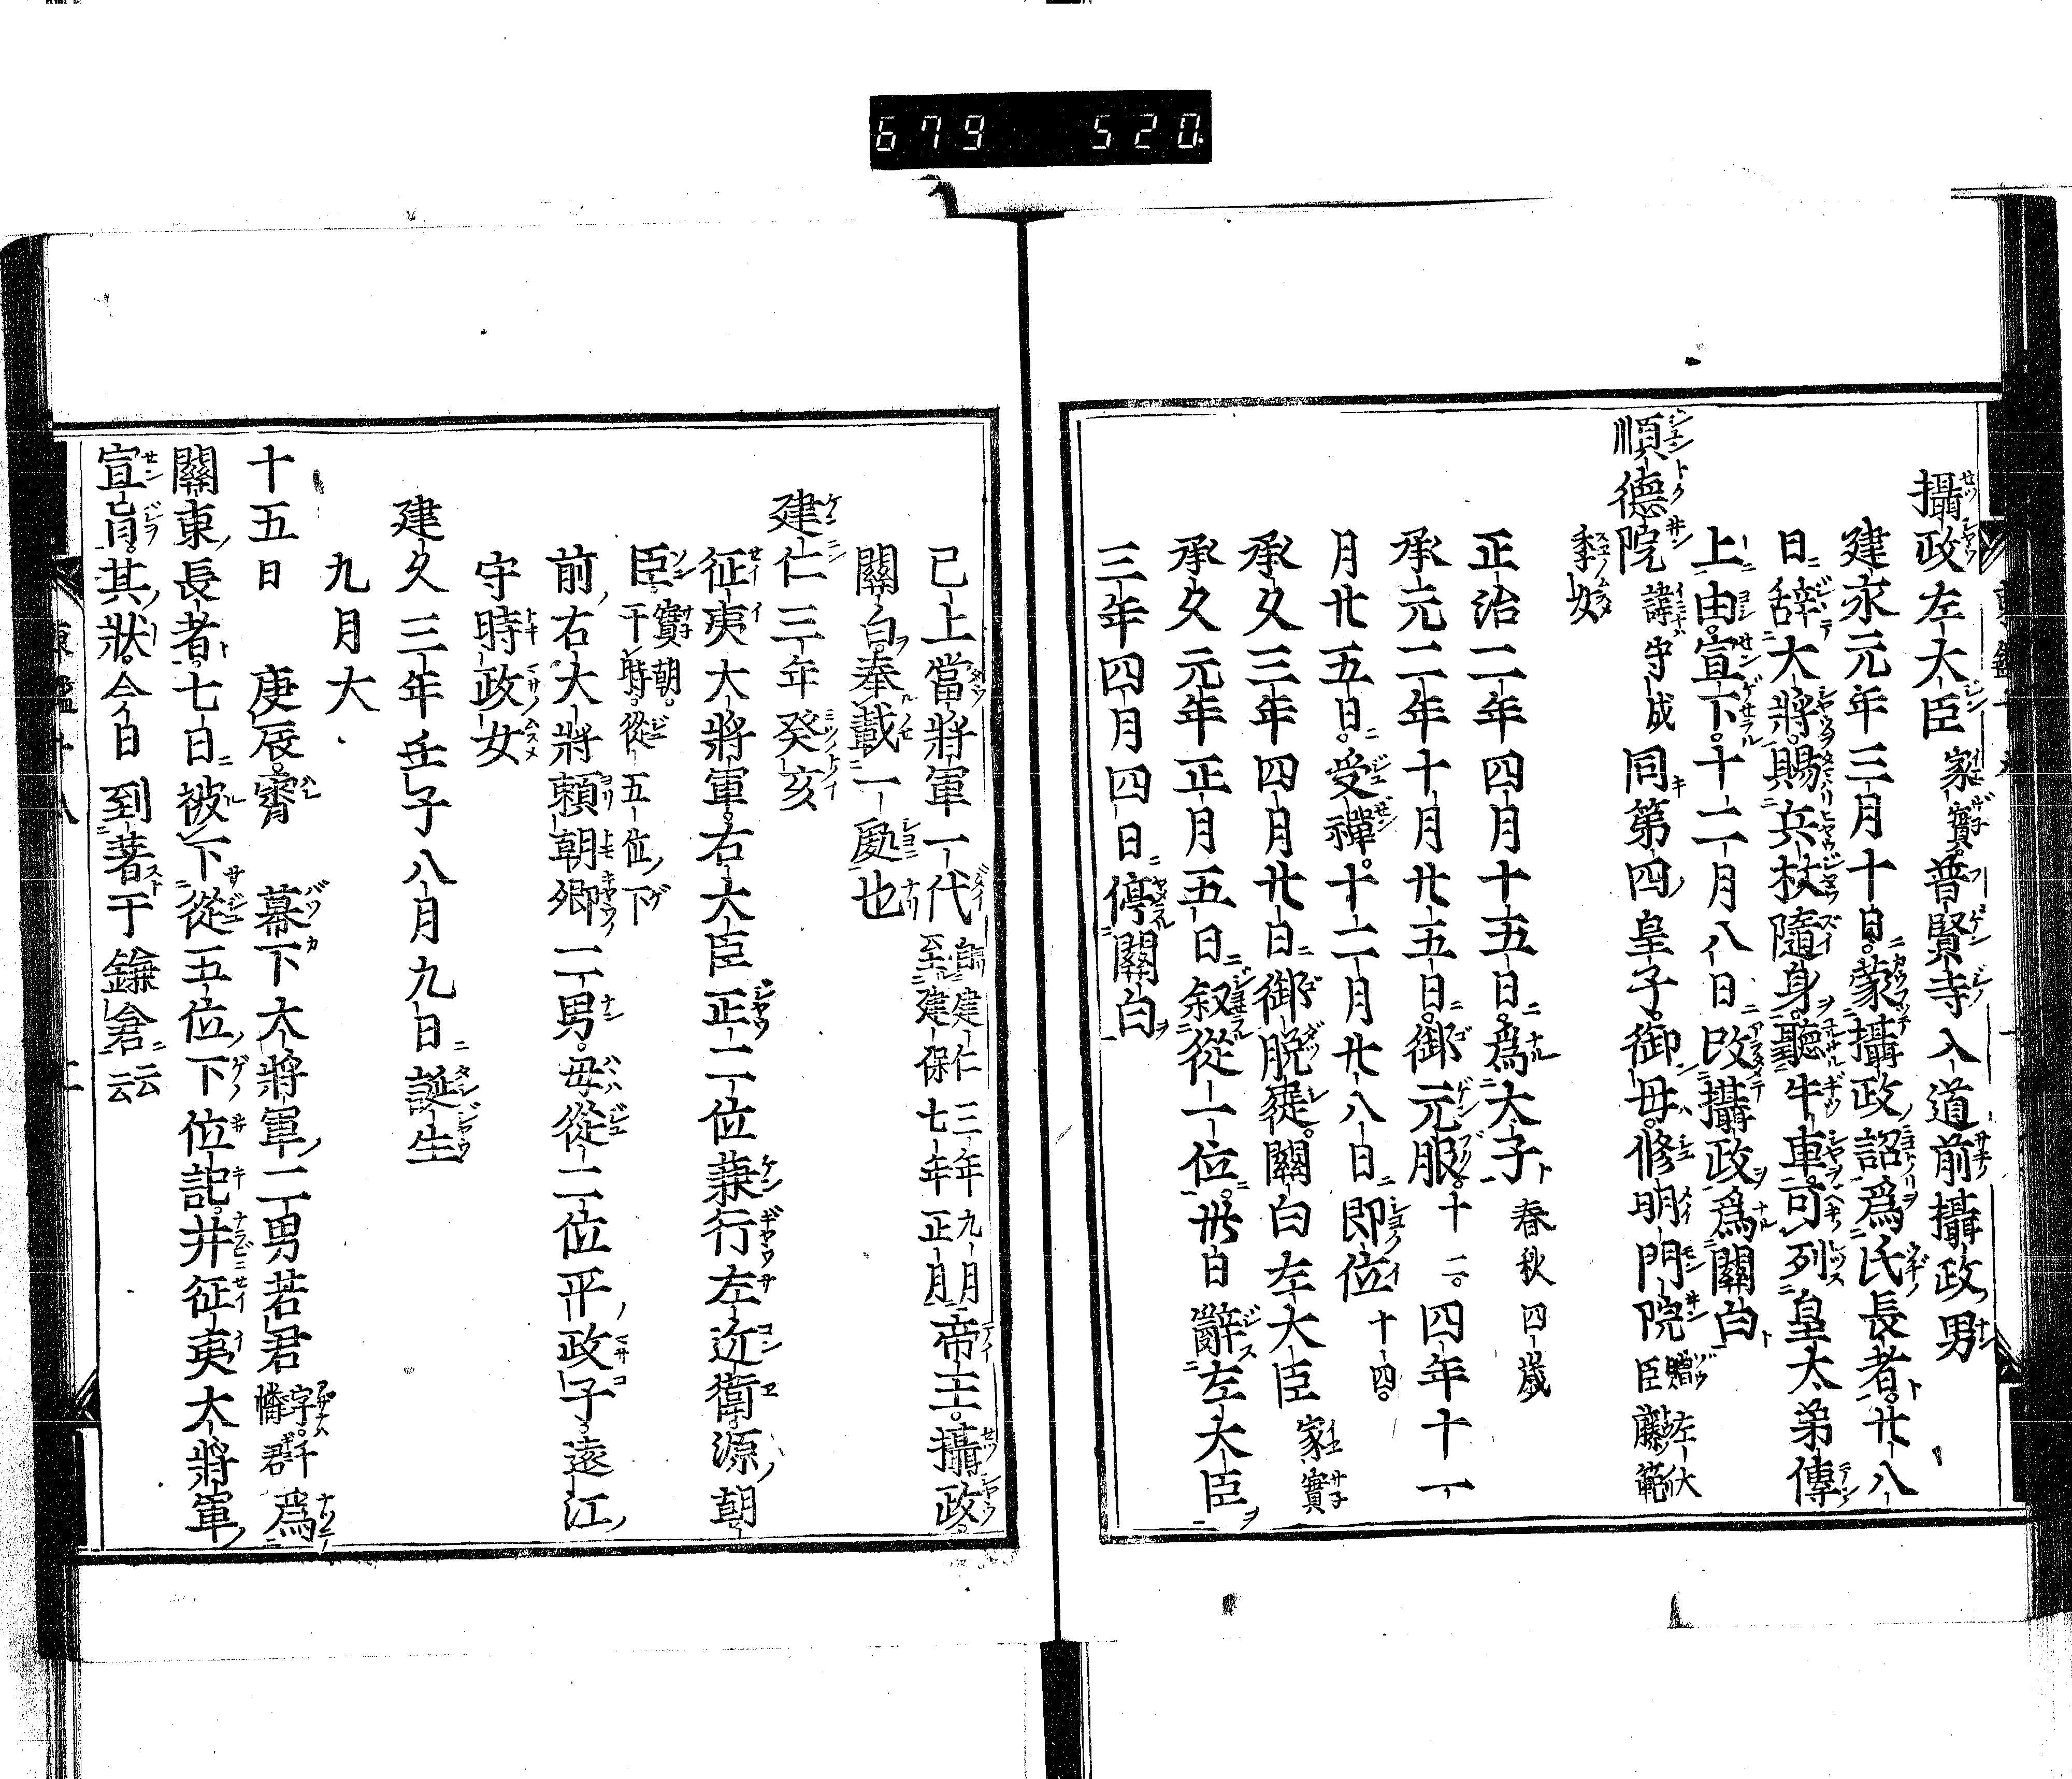 679 520
攝政左大臣家實。普賢寺入道前攝政男
建永元年三月十日。蒙攝政詔爲氏長者。廿八
日辭大將。賜兵杖隨身。聽牛車。可列皇太弟傳
上由。宣下。十二月八日改攝政爲關白
順德院諱守成同第四皇子。御母。修明門院贈左大臣藤範
季女
正治二年四月十五日。爲太子春秋四歲
承元二年十月廿五日。御元服。十二。四年十一
月廿五日。受禪。十二月廿八日即位十四。
承久三年四月廿日御脫屣。關白左大臣家實
承久元年正月五日叙從一位。卅日辭左大臣
三年四月四日停關白
已上當將軍一代自建仁三年九月至建保七年正月帝王。攝政。
關白。奉載一處也
建仁三年癸亥
征夷大將軍。右大臣正二位兼行左近衛。源朝
臣。實朝。于時。從五位下
前右大將賴朝卿二男。母從二位平政子。遠江
守時政女
建久三年壬子八月九日誕生
九月大
十五日 庚辰。霽 幕下大將軍二男若君字。千幡君群爲
關東長者。七日被下從五位下位記。并征夷大將軍
宣旨。其狀。今日到著于鎌倉云云